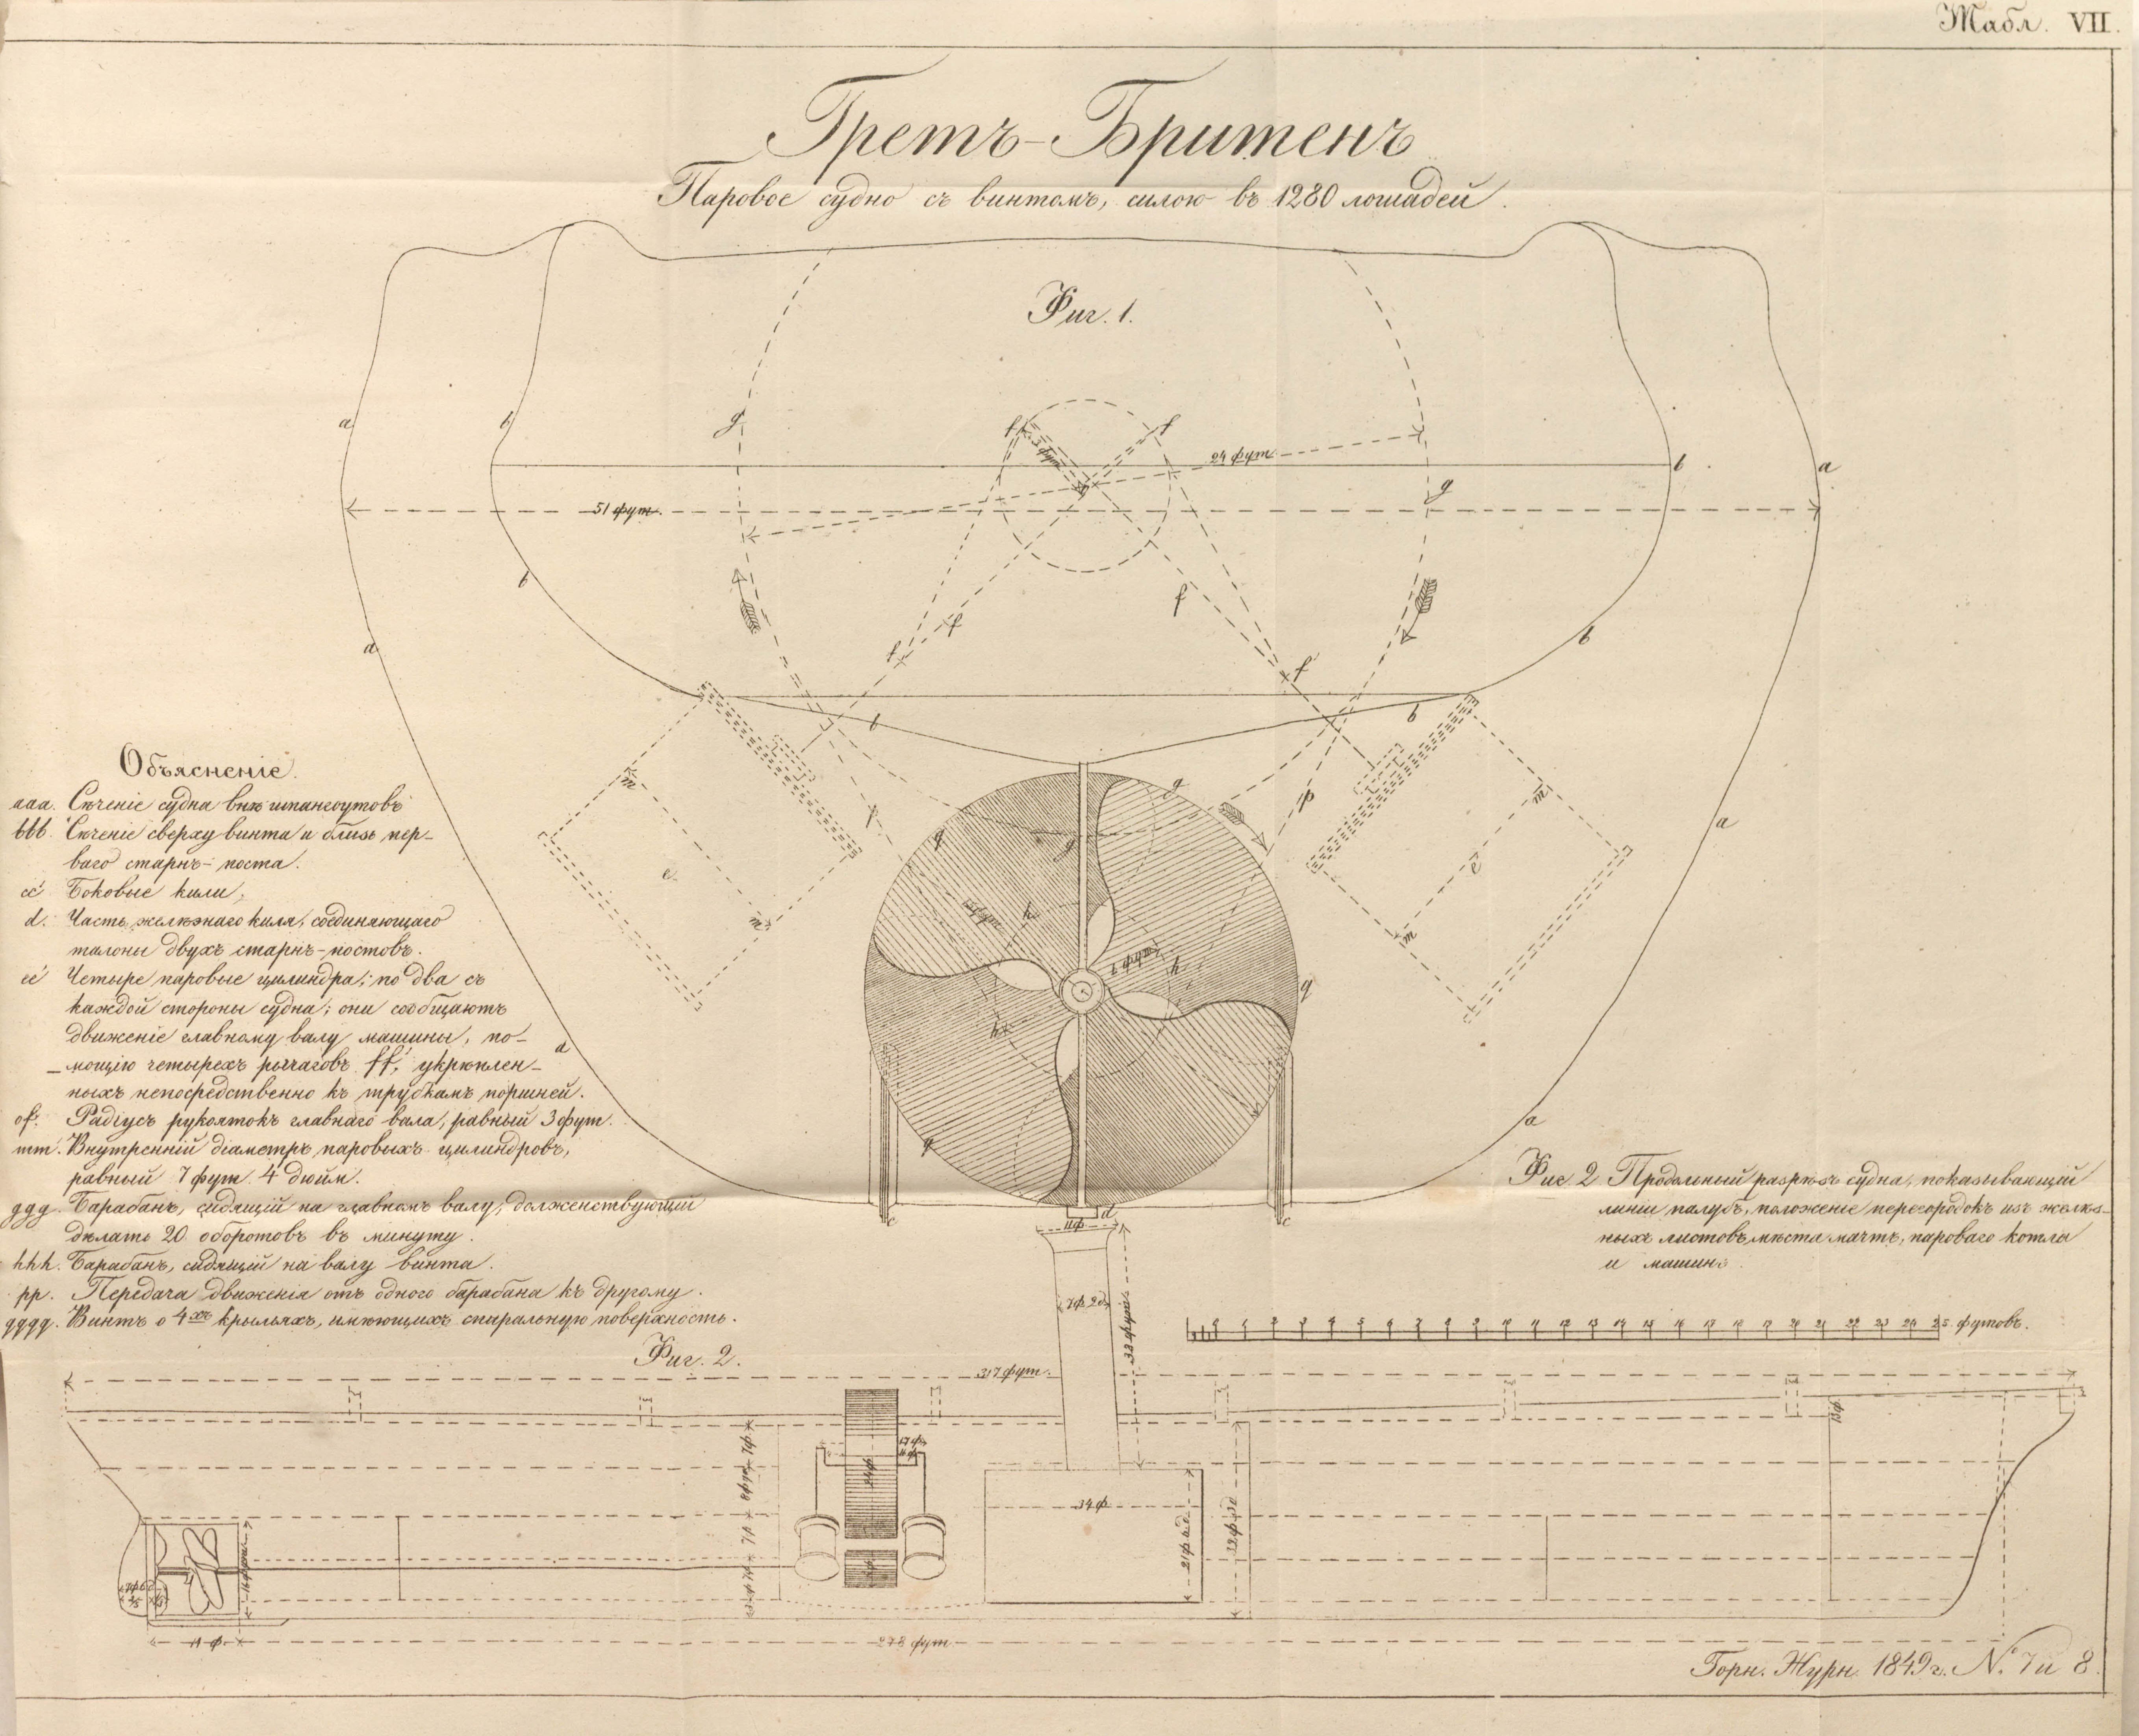 Табл. VII.
Гретъ-Бритенъ
Паровое судно съ винтомъ, силою въ 1280 лошадей.
Фиг. 1.
a
b
g
f
f
3 фут
24 фут
b
a
g
51 фут.
b
f
f
a
f
f
b
b
b
Объясненіе.
aaa. Сѣченіе судна внѣ шпангоутовъ
bbb. Сѣченіе сверху винта и близь пер-
ваго старнъ-поста.
cc' Боковые кили;
d. Часть желѣзнаго киля, соединяющаго
талоны двухъ старнъ-постовъ.
ee' Четыре паровые цилиндра; по два съ
каждой стороны судна; они сообщаютъ
движеніе главному валу машины, по-
-мощію четырехъ рычаговъ ff', укрѣплен-
ныхъ непосредственно къ трубкамъ поршней.
of. Радіусъ рукоятокъ главнаго вала, равный 3 фут.
mm. Внутренній діаметръ паровыхъ цилиндровъ,
равный 7 фут. 4 дюйм.
ggg. Барабанъ, сидящій на главномъ валу, долженствующій
дѣлать 20 оборотовъ въ минуту.
hhh. Барабанъ, сидящій на валу винта.
pp. Передача движенія отъ одного барабана къ другому.
qqqq. Винтъ о 4хъ крыльяхъ, имѣющихъ спиральную поверхность.
m
e
m
p
q
g
g
p
m
e'
m
a
h
6 фут
h
q
h
a
q
a
c
d
c
11ф
Фиг 2 Продольный разрѣзъ судна, показывающій
линіи палубъ, положеніе перегородокъ изъ желѣз-
ныхъ листовъ, мѣста мачтъ, пароваго котла
и машинъ
7ф 2д
38 фут
0 1 2 3 4 5 6 7 8 9 10 11 12 13 14 15 16 17 18 19 20 21 22 23 24 25 футовъ.
Фиг. 2.
317 фут.
7ф
8 фут
7ф
7ф
24ф
34 ф
21ф 6д
32ф 3д
13ф
11 ф.
278 фут
Горн. Журн. 1849 г. N. 7 и 8.